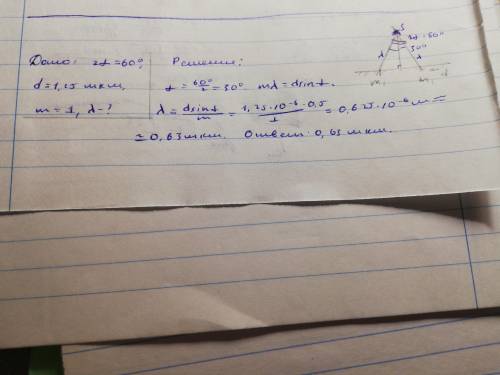 Дано: 2φ=60°,
d=1,25 мкм,
m=1, λ-?
Решение:
φ=60°/2=30° mλ=dsinφ.
λ=dsinφ/m=1,25·10⁻⁶·0,5/1=0,625·10⁻⁶м≈
≈0,63мкм. Ответ: 0,63мкм.
S
2φ=60°
30°